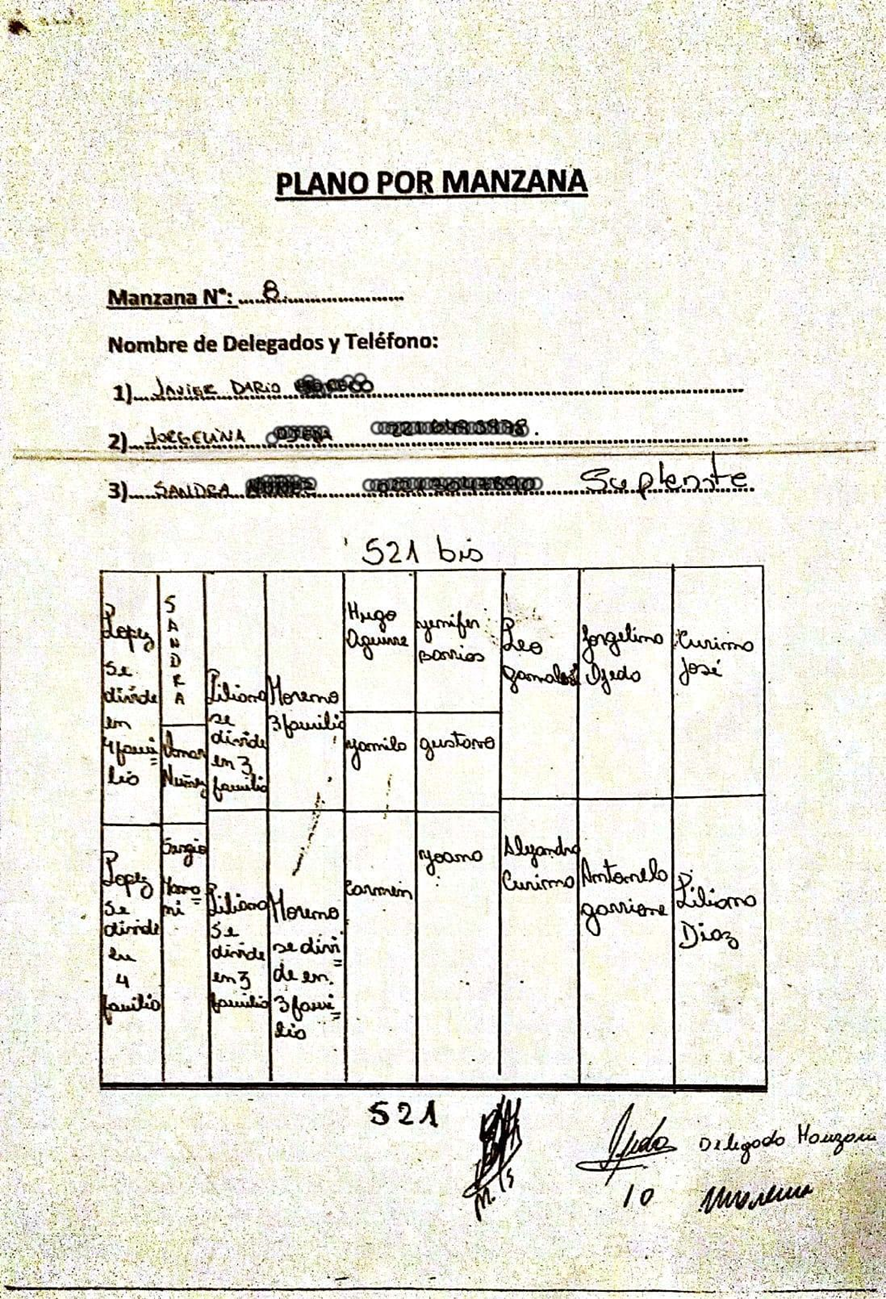 PLANO POR MANZANA
Manzana N°: 8
Nombre de Delegados y Teléfono:
1) JAVIER DARIO
2) JORGELINA
3) SANDRA Suplente
521 bis
Lopez
se
divide
en
4 fami=
lia
SANDRA
Omar
Nuñez
Liliana
se
divide
en 3
familia
Moreno
3 familia
Hugo
Aguirre
Yamila
Yenifer
Barrios
gustavo
Leo
Jorgelina
Ojeda
Curima
José
Lopez
se
divide
en
4
familia
Sergio
Mama=
ni
Liliana
se
divide
en 3
familia
Moreno
se divi=
de en
3 fami=
lia
Carmen
Yoana
Alejandra
Curima
Antonela
Liliana
Diaz
521
Ojeda Delegado Manzana
10 Moreno